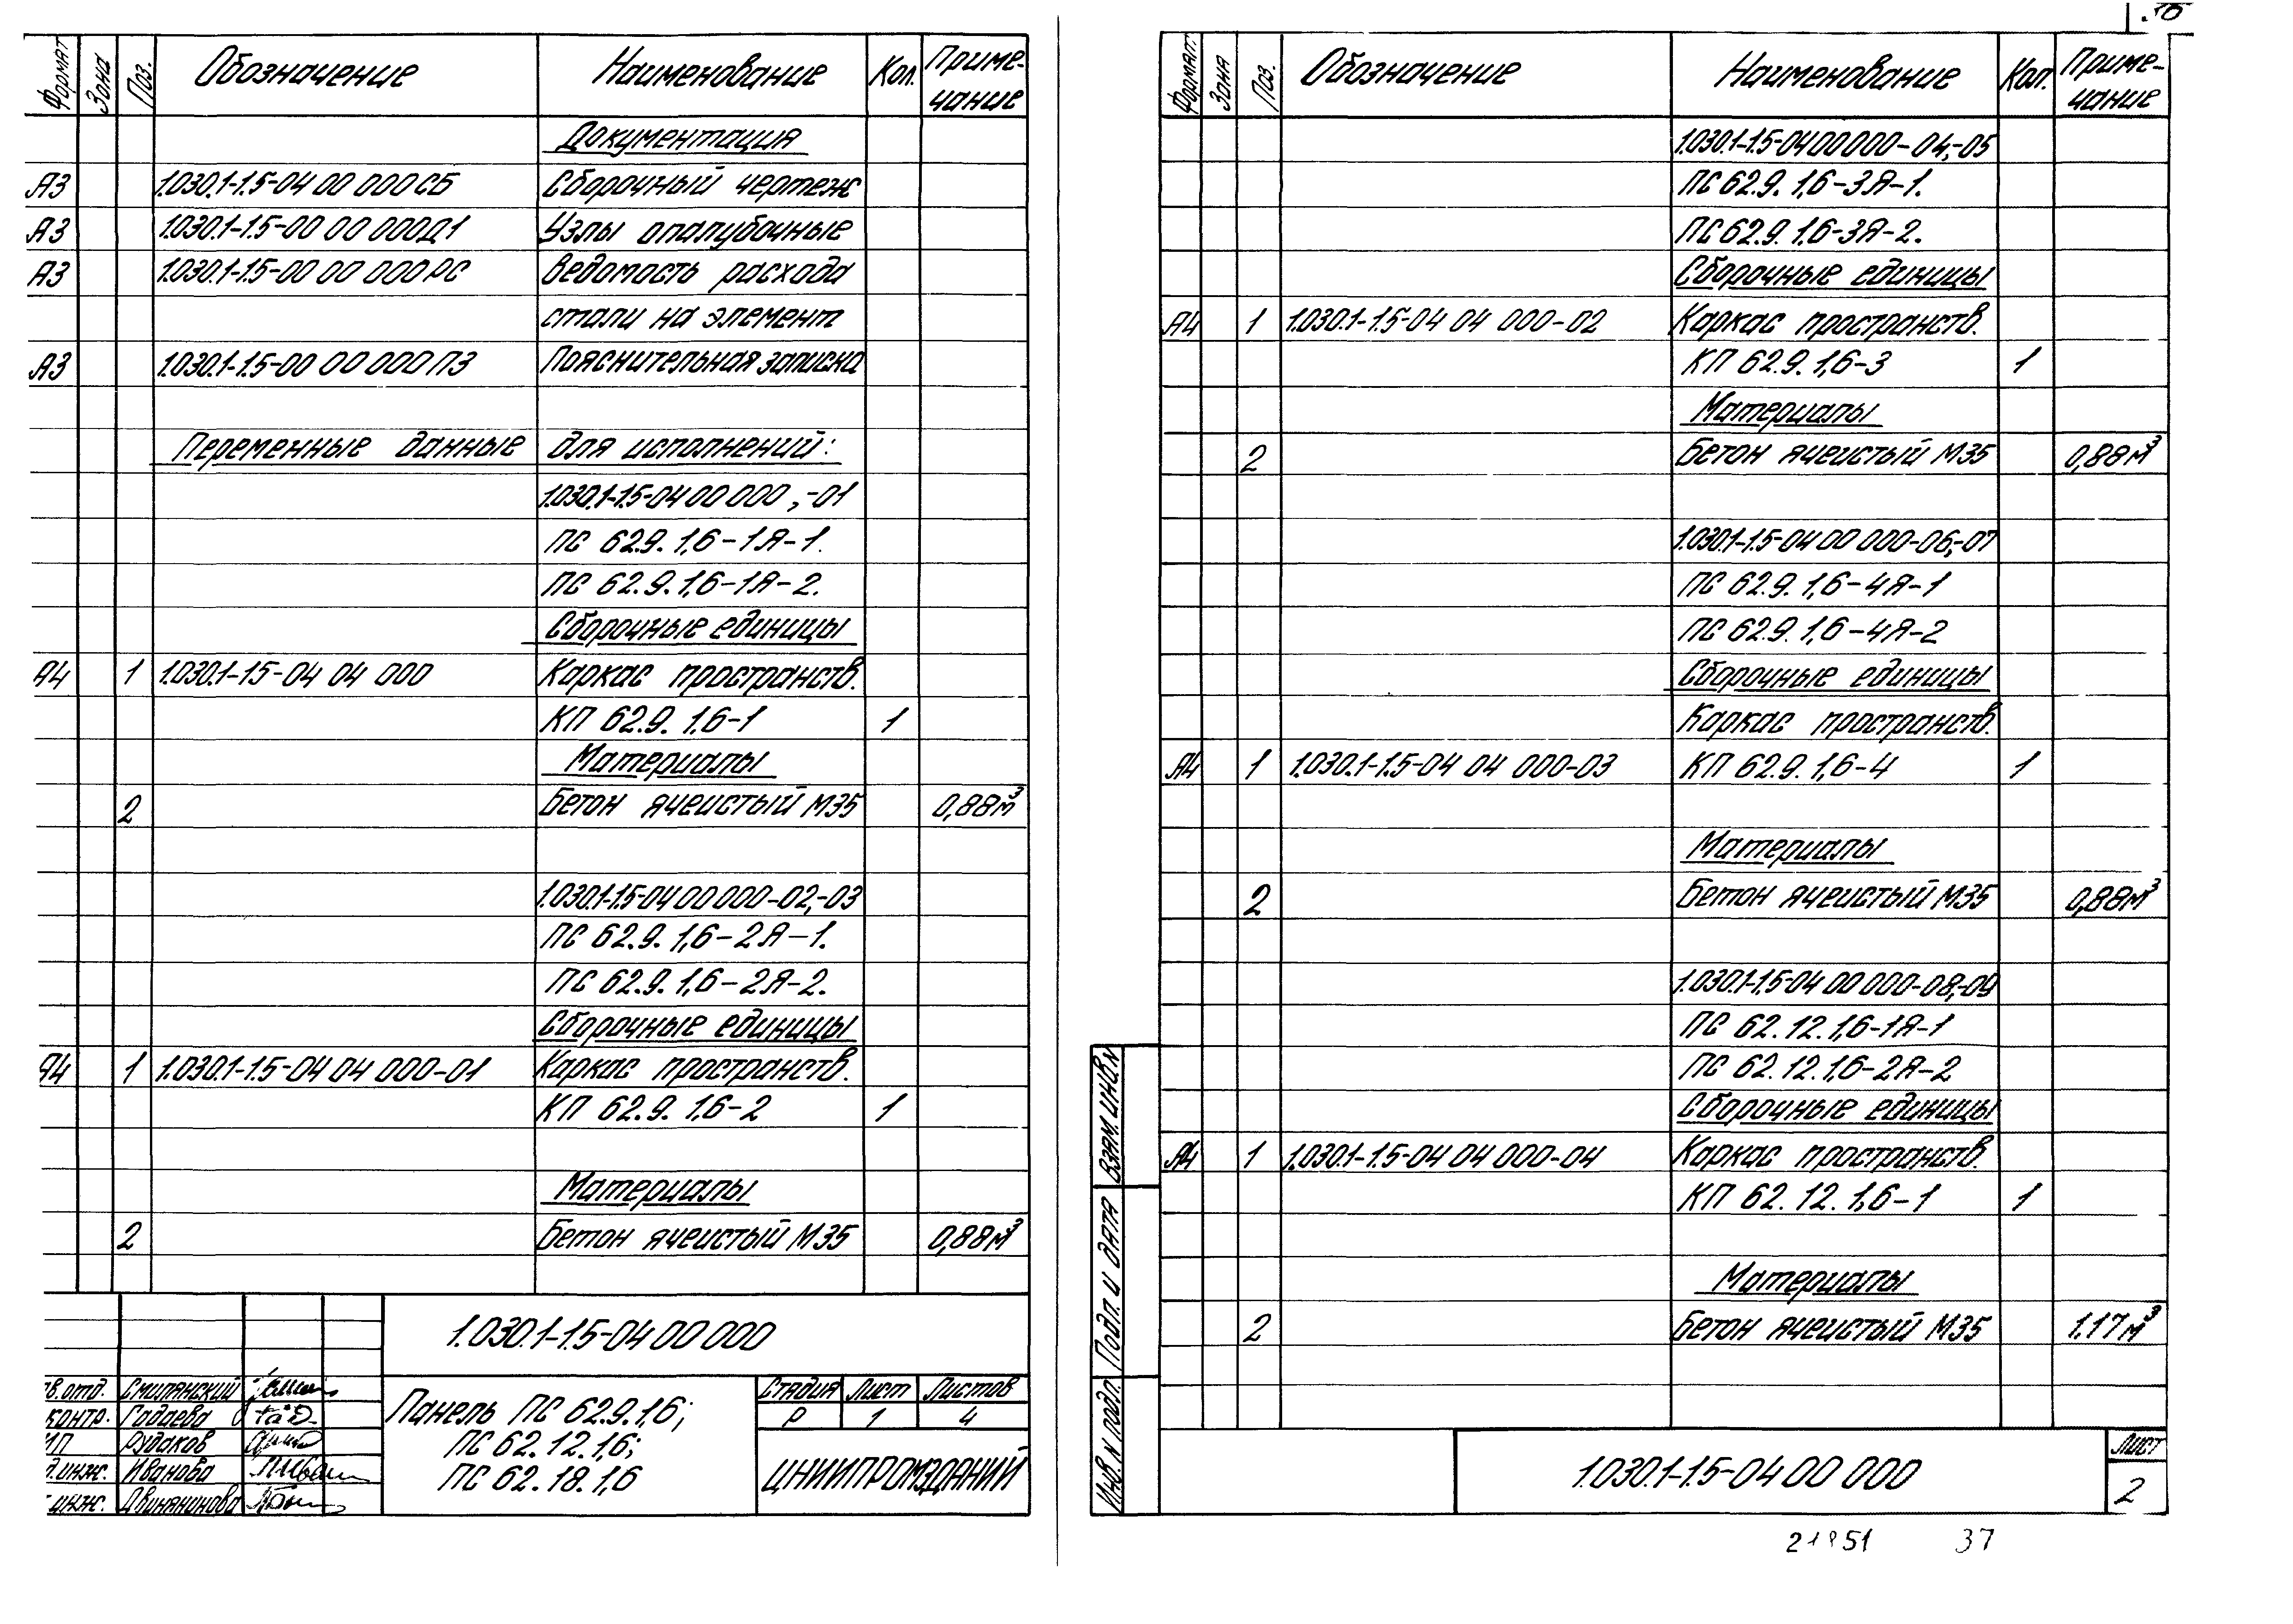 Формат Зона Поз. Обозначение Наименование Кол. Приме-
чание
Документация
А3 1.030.1-1.5-04 00 000СБ Сборочный чертеж
А3 1.030.1-1.5-00 00 000Д1 Узлы опалубочные
А3 1.030.1-1.5-00 00 000РС Ведомость расхода
стали на элемент
А3 1.030.1-1.5-00 00 000ПЗ Пояснительная записка
Переменные данные для исполнений:
1.030.1-1.5-04 00 000,-01
ПС 62.9.1,6-1Я-1.
ПС 62.9.1,6-1Я-2.
Сборочные единицы
А4 1 1.030.1-15-04 04 000 Каркас пространств.
КП 62.9.1.6-1 1
Материалы
2 Бетон ячеистый М35 0,88м³
1.030.1-1.5-04 00 000-02,-03
ПС 62.9.1,6-2Я-1.
ПС 62.9.1,6-2Я-2.
Сборочные единицы
А4 1 1.030.1-1.5-04 04 000-01 Каркас пространств.
КП 62.9.1.6-2 1
Материалы
2 Бетон ячеистый М35 0,88м³
1.030.1-1.5-04 00 000
в.отд. Смилянский
контр. Гадаева
ИП Рудаков
д.инж. Иванова
инж. Двинянинова
Панель ПС 62.9.1,6;
ПС 62.12.1,6;
ПС 62.18.1,6
Стадия Лист Листов
Р 1 4
ЦНИИПРОМЗДАНИЙ
.16
Формат Зона Поз. Обозначение Наименование Кол. Приме-
чание
1.030.1-1.5-04 00 000-04,-05
ПС 62.9.1,6-3Я-1.
ПС 62.9.1,6-3Я-2.
Сборочные единицы
А4 1 1.030.1-1.5-04 04 000-02 Каркас пространств.
КП 62.9.1,6-3 1
Материалы
2 Бетон ячеистый М35 0,88м³
1.030.1-1.5-04 00 000-06,-07
ПС 62.9.1,6-4Я-1
ПС 62.9.1,6-4Я-2
Сборочные единицы
Каркас пространств.
А4 1 1.030.1-1.5-04 04 000-03 КП 62.9.1,6-4 1
Материалы
2 Бетон ячеистый М35 0,88м³
1.030.1-1.5-04 00 000-08,-09
ПС 62.12.1,6-1Я-1
ПС 62.12.1,6-2Я-2
Сборочные единицы
А4 1 1.030.1-1.5-04 04 000-04 Каркас пространств.
КП 62.12.1,6-1 1
Материалы
2 Бетон ячеистый М35 1.17м³
Взам.инв.N
Подп. и дата
Инв.N подл.
1.030.1-1.5-04 00 000
Лист
2
21851 37